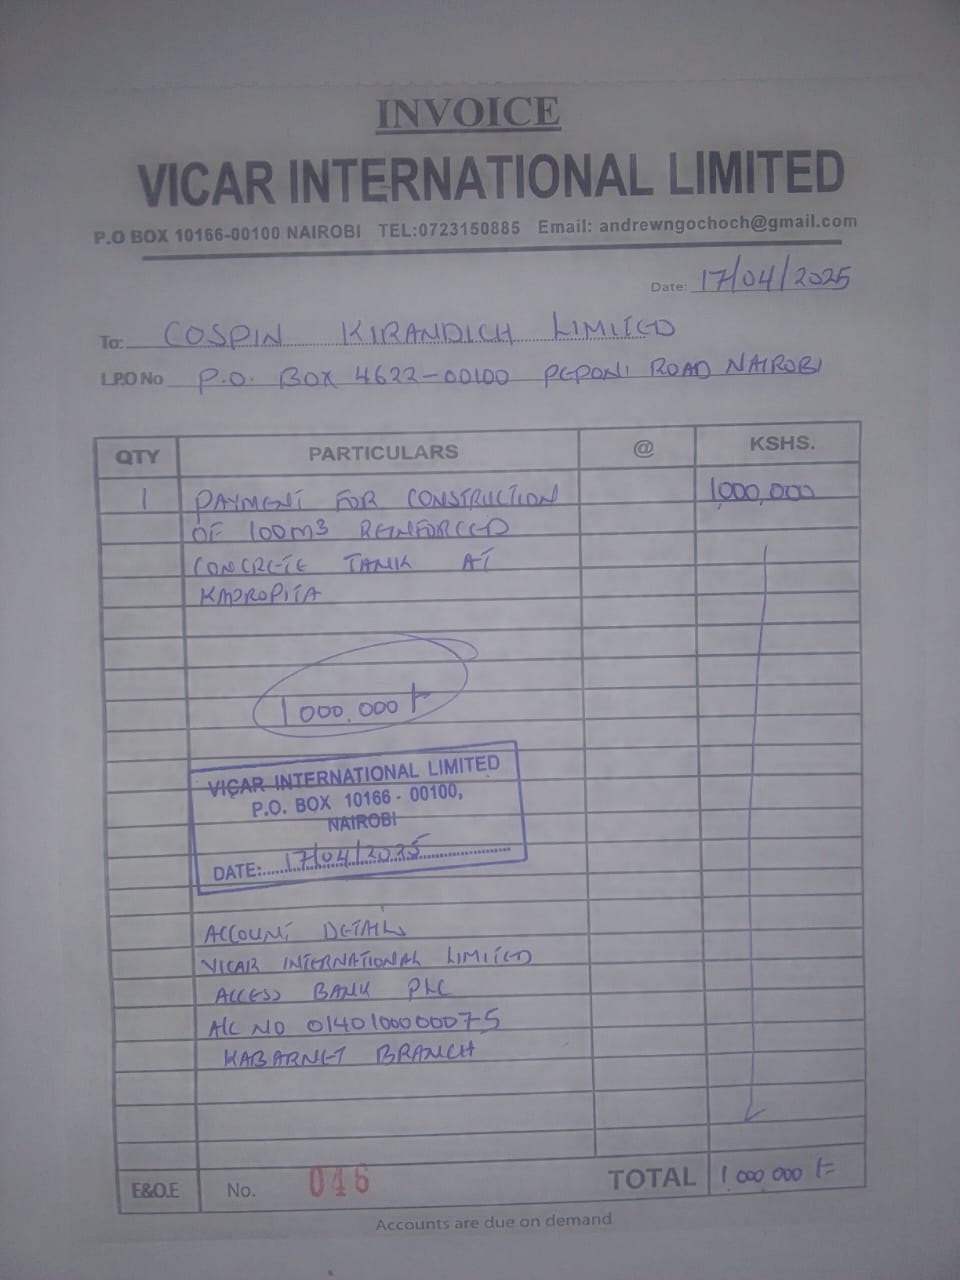 INVOICE
VICAR INTERNATIONAL LIMITED
P.O BOX 10166-00100 NAIROBI TEL:0723150885 Email: andrewngochoch@gmail.com
Date: 17/04/2025
To: COSPIN KIRANDICH LIMITED
L.P.O No P.O. BOX 4622-00100 PEPONI ROAD NAIROBI
QTY PARTICULARS @ KSHS.
1 PAYMENT FOR CONSTRUCTION 1,000,000
OF 100M3 REINFORCED
CONCRETE TANK AT
KAPROPITA
1 000,000/-
VICAR INTERNATIONAL LIMITED
P.O. BOX 10166 - 00100,
NAIROBI
DATE: 17/04/2025
ACCOUNT DETAILS
VICAR INTERNATIONAL LIMITED
ACCESS BANK PLC
A/C NO 0140100000075
KABARNET BRANCH
E&O.E No. 046 TOTAL 1 000 000/=
Accounts are due on demand